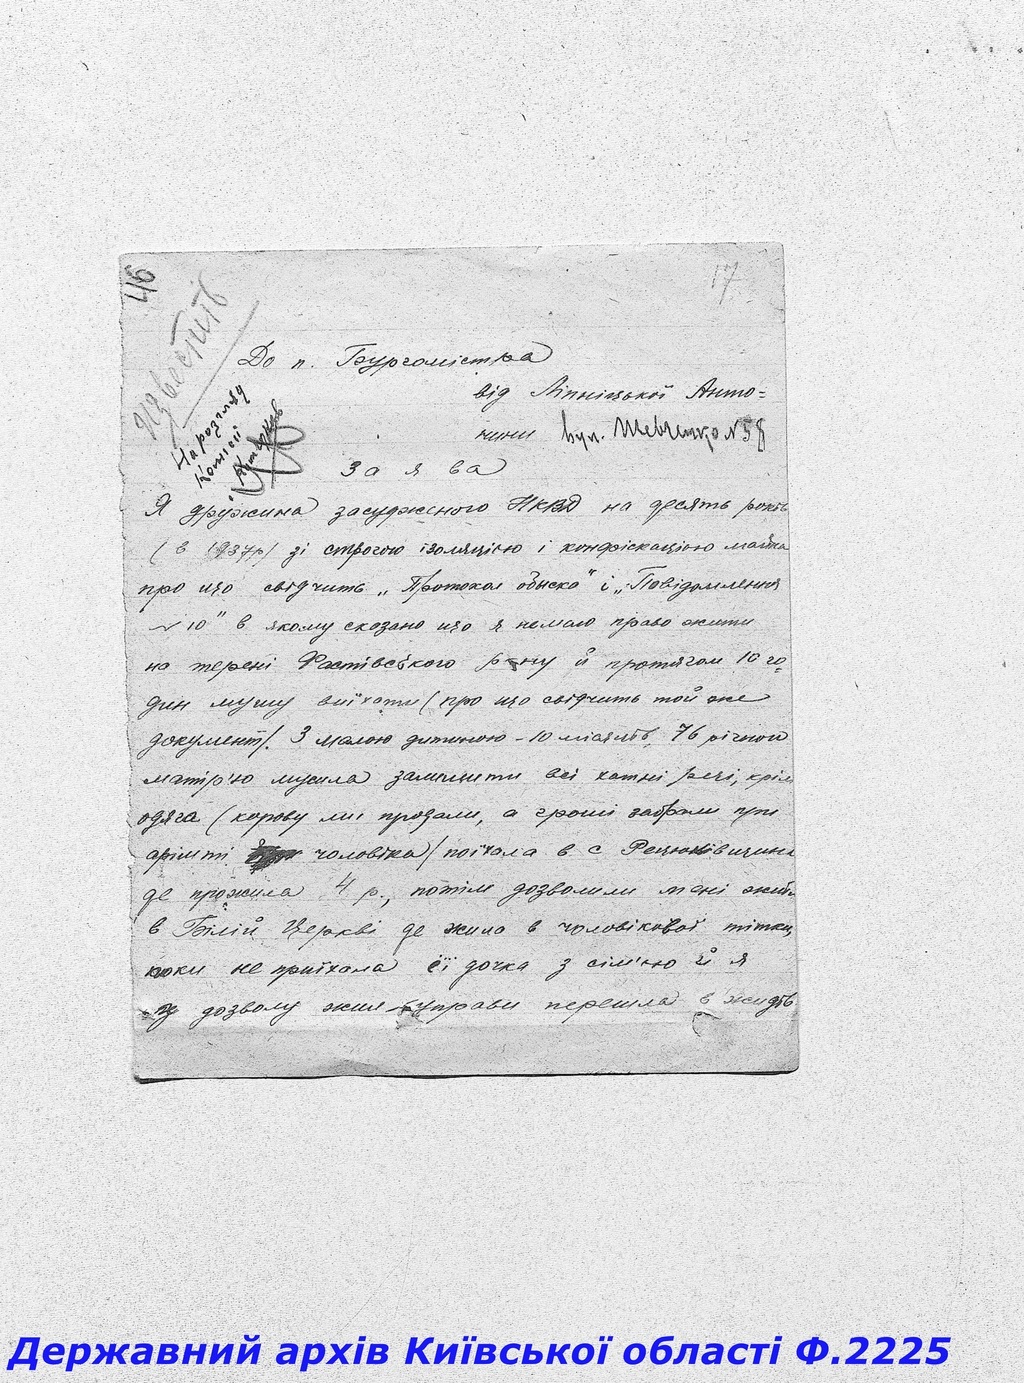 46
17
Извѣстить
До п. Бургомістра
від Ліпніцької Анто=
нини вул. Шевченко № 58
На розгляд
Комісії
Заява
Я дружина засуженого НКВД на десять років
(в 1937р) зі строгою ізоляцією і конфіскацією майна
про що свідчить „Протокол обыска" і „Повідомлення
№ 10" в якому сказано що я немаю право жити
на терені Фастівського р-ну й протягом 10 го=
дин мушу виїхати (про що свідчить той же
документ). З малою дитиною - 10 місяців, 76 річною
матір'ю мусила залишити всі хатні речі, крім
одяга (корову ми продали, а гроші забрали при
арішті чоловіка) поїхала в с
де прожила 4 р., потім дозволили мені жити
в Білій Церкві де жила в чоловікової тітки,
поки не приїхала її дочка з сім'ю й я
з дозволу жил-управи перешла в жидів
Державний архів Київської області Ф.2225